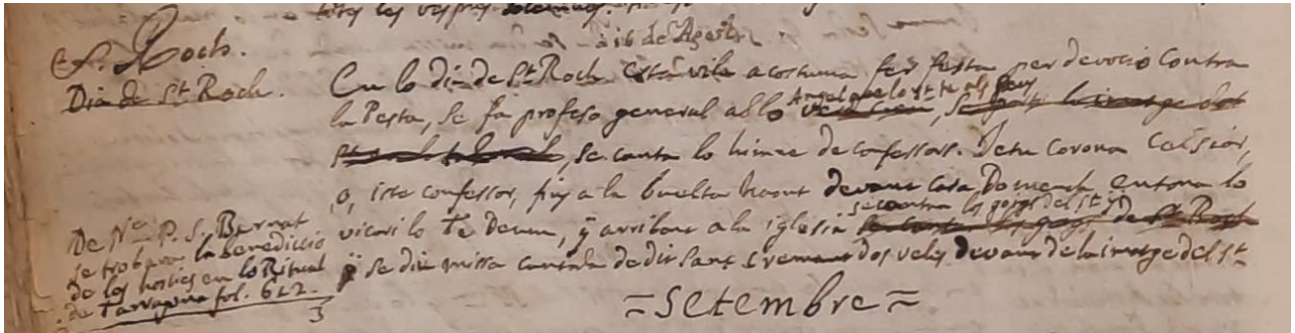 totes les vespres solemnes.
S. Roch.
Dia de St. Roch.
a 16 de Agost
En lo dia de St. Roch esta vila acostuma fer festa per devocio contra
Angel que lo St. te als peus
la Pesta, se fa profeso general ab lo vera creu, se porta la imatge del
se canta lo himne de confessors. Jetu Corona Celsior,
o, iste confessor, fins a la buelta devant casa Domenech entona lo
se cantan los goigs del St. y
vicari lo Te Deum, y arribant a la iglesia se cantan los goigs de St. Roch
y se diu missa cantada de dit Sant cremant dos velas devant de la imatge del St.
De N. P. S. Bernat
se trobara la benediccio
de los hosties en lo Ritual
de Tarragona fol. 612.
3
= Setembre =